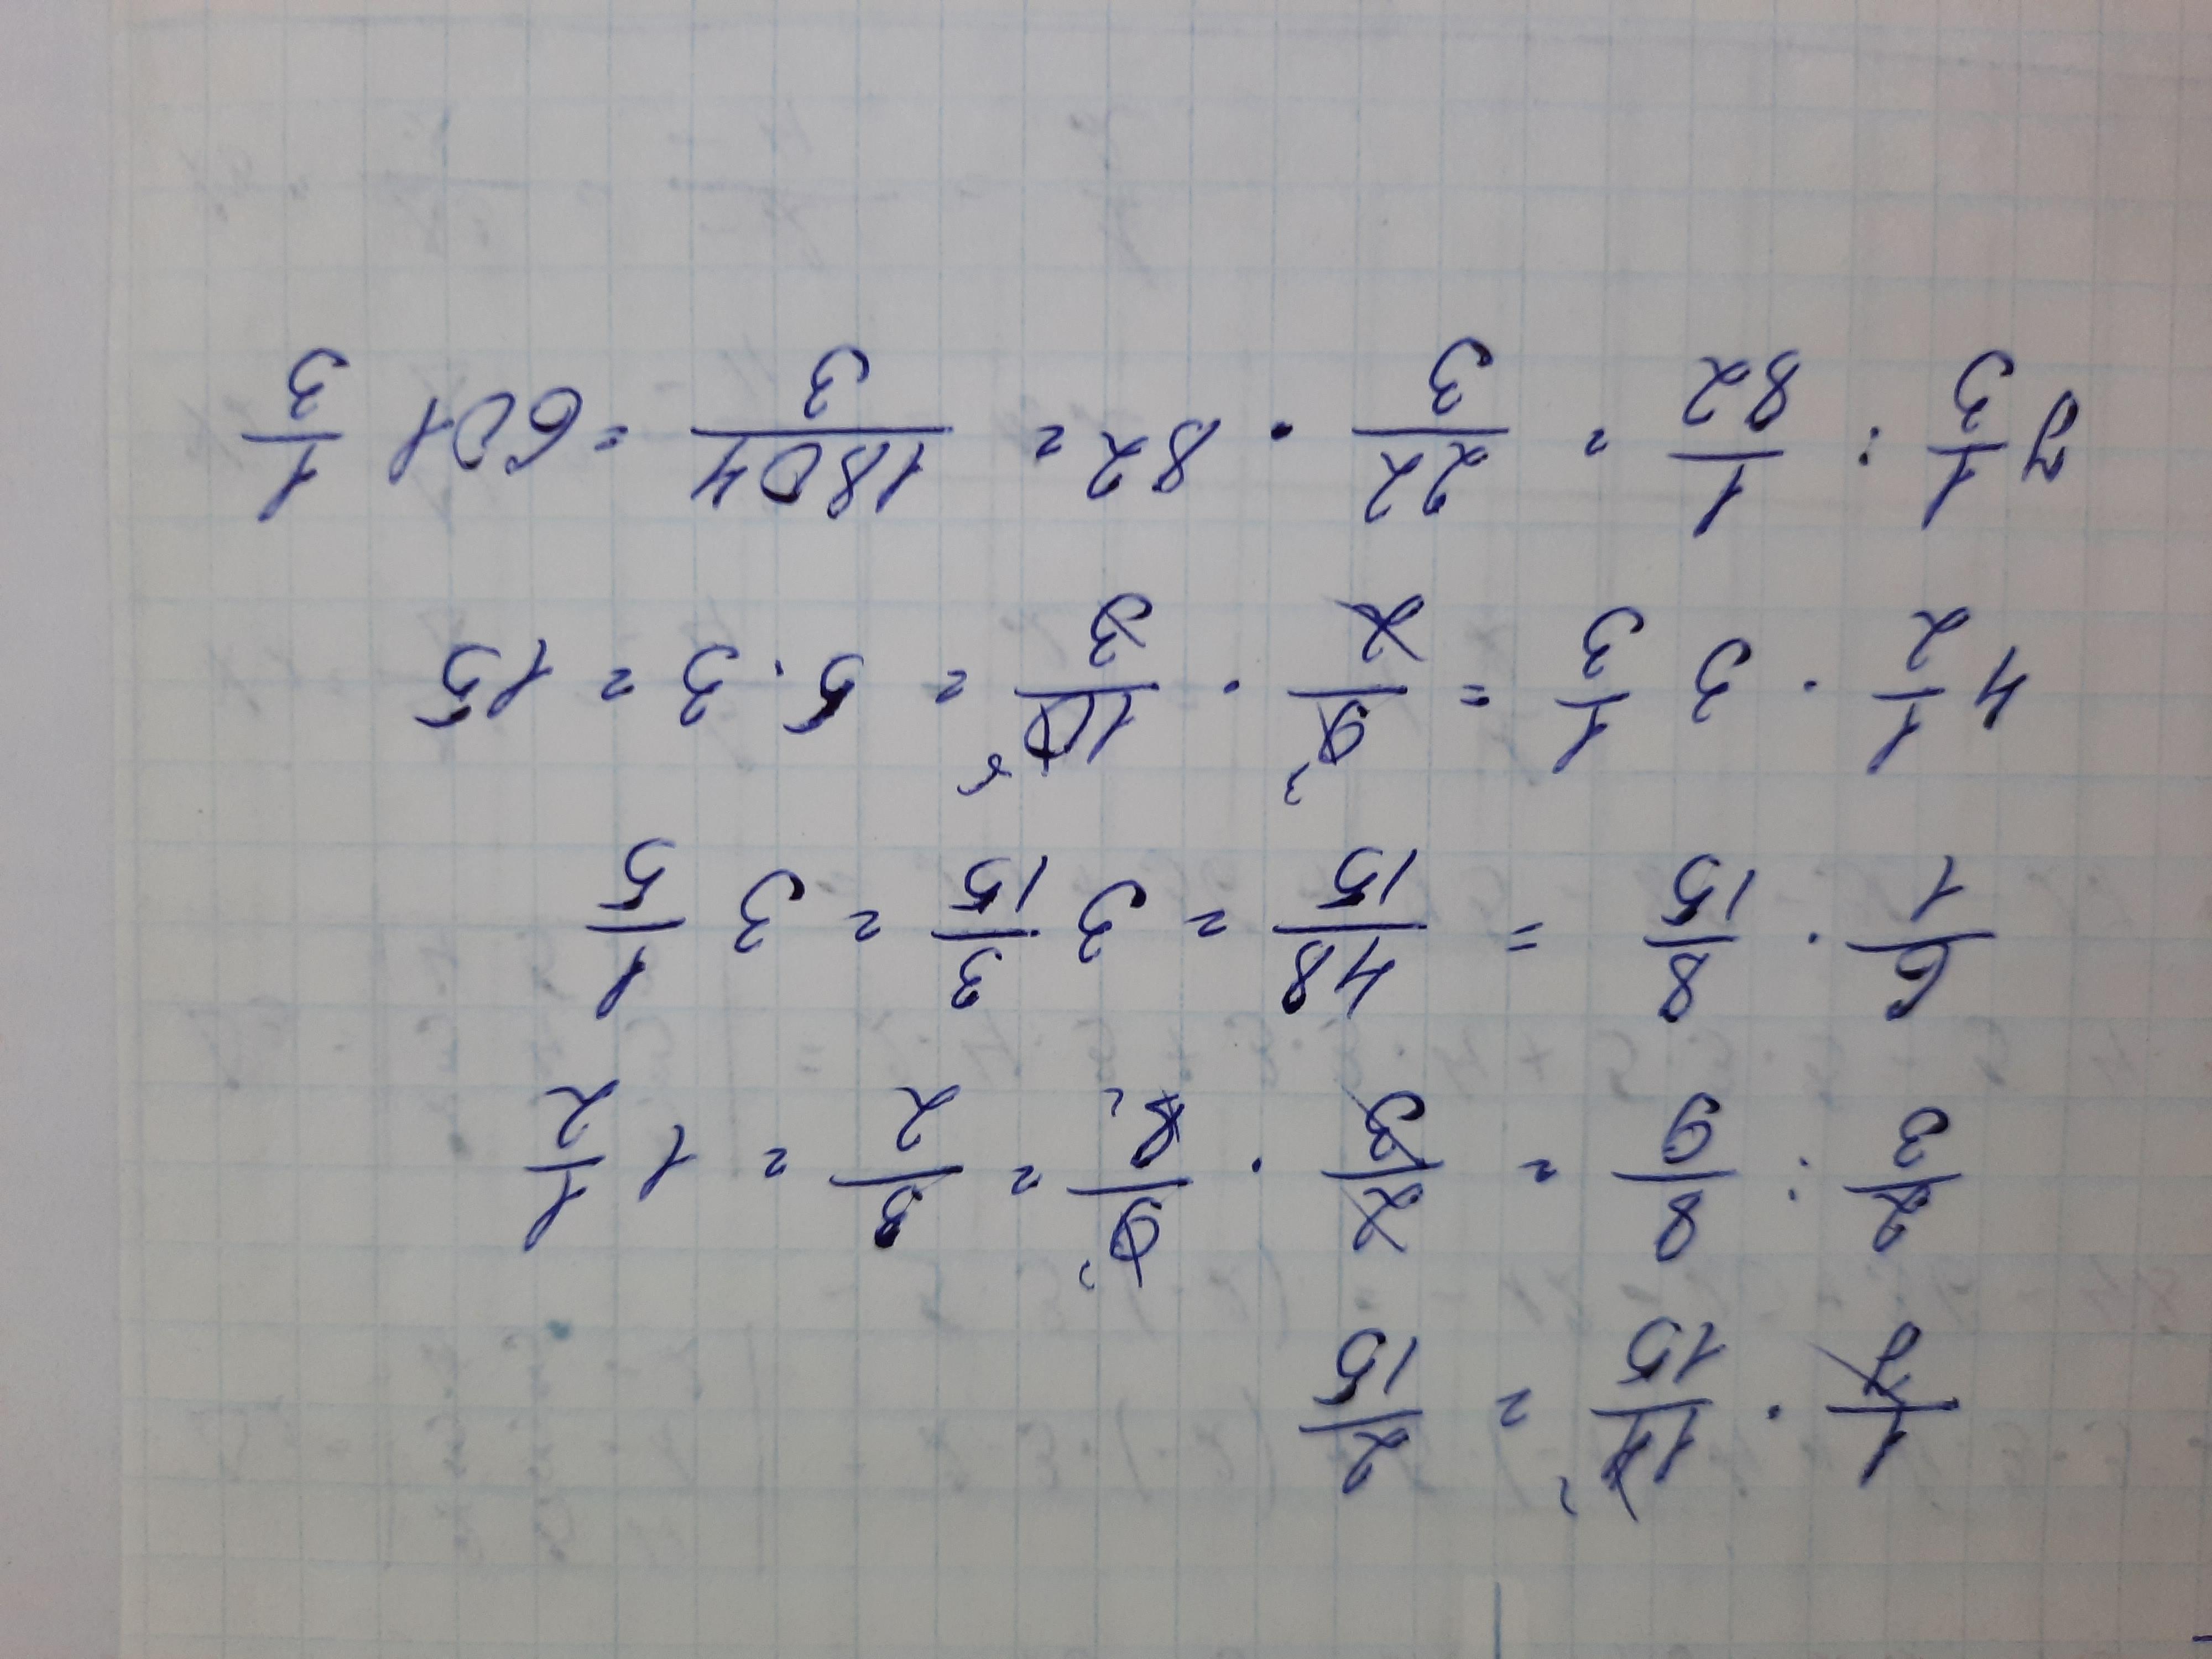 1/7 · 14/15 = 2/15
2/3 : 8/9 = 2/3 · 9/8 = 3/2 = 1 1/2
6/1 · 8/15 = 48/15 = 3 3/15 = 3 1/5
4 1/2 · 3 1/3 = 9/2 · 10/3 = 5 · 3 = 15
7 1/3 : 1/82 = 22/3 · 82 = 1804/3 = 601 1/3